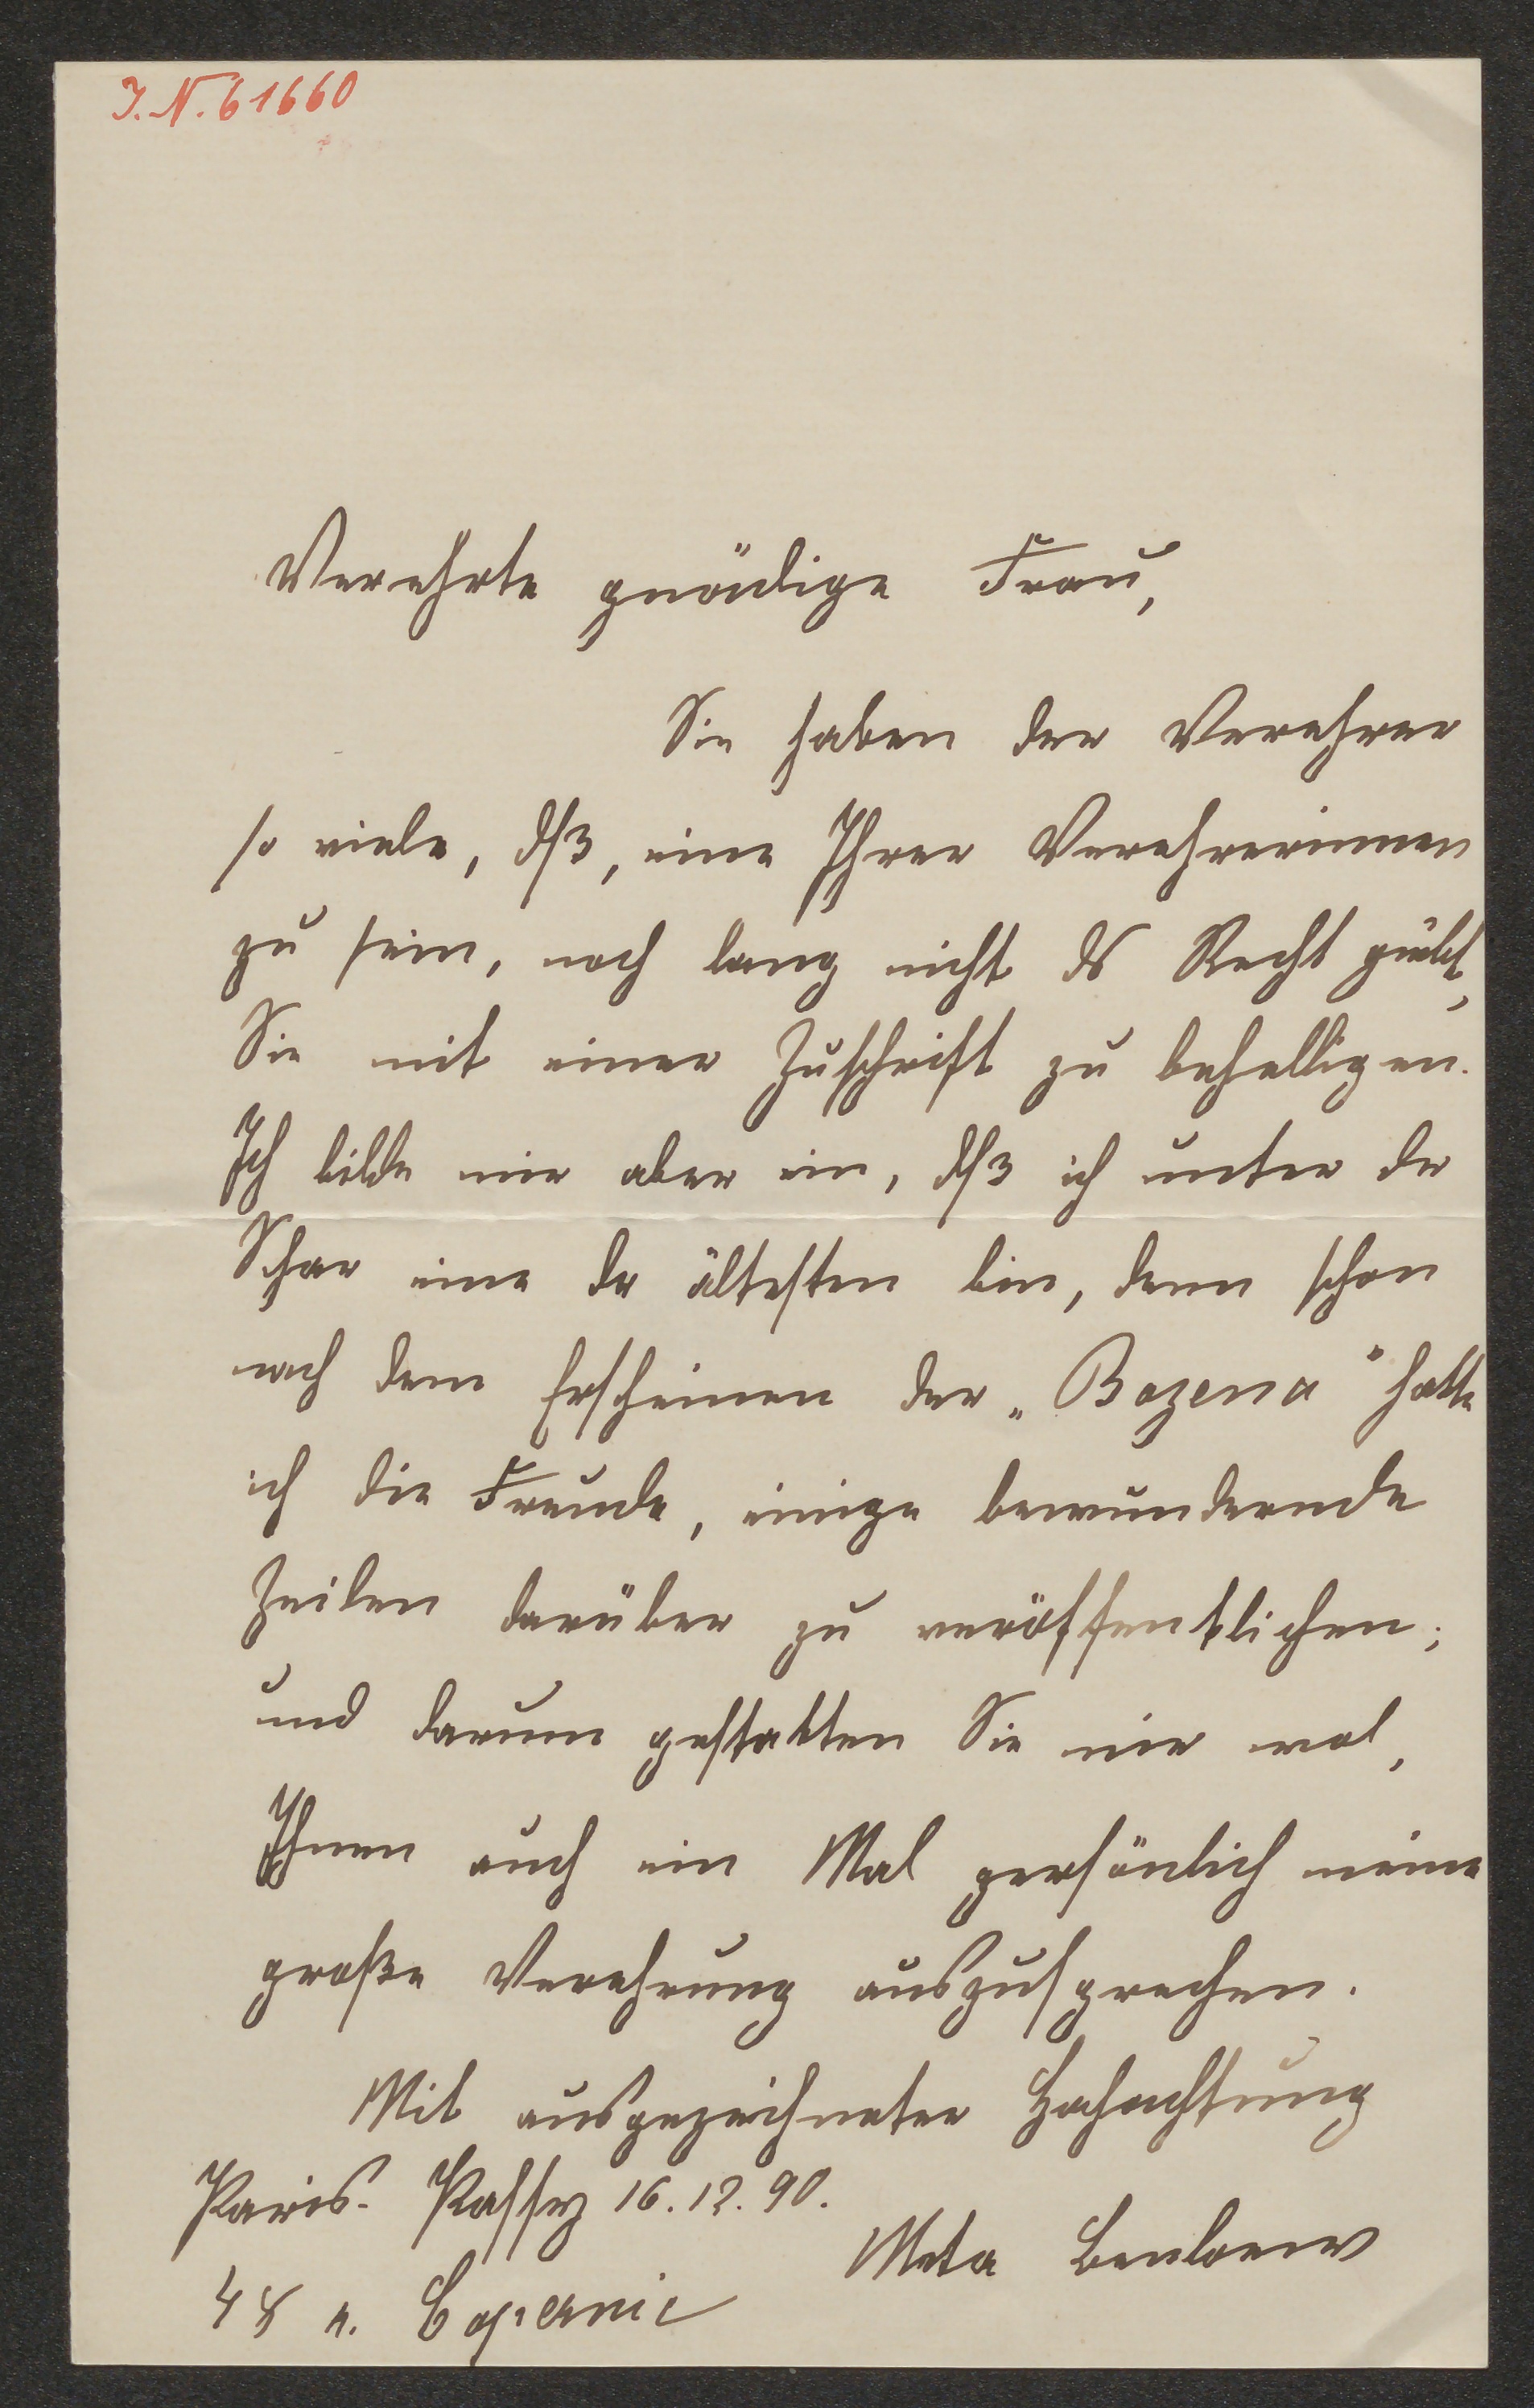 J. N. 61660
Verehrte gnädige Frau,
Sie haben der Verehrer
so viele, dß, eine Ihrer Verehrerinnen
zu sein, noch lang nicht ds Recht giebt,
Sie mit einer Zuschrift zu behelligen.
Ich bilde mir aber ein, dß ich unter der
Schar eine der ältesten bin, denn schon
nach dem Erscheinen der „Bozena" hatte
ich die Freude, einige bewundernde
Zeilen darüber zu veröffentlichen;
und darum gestatten Sie mir wol,
Ihnen auch ein Mal persönlich meine
große Verehrung auszusprechen.
Mit ausgezeichneter Hochachtung
Paris-Passy 16.12.90.
Meta Benloew
48 r. Copernic